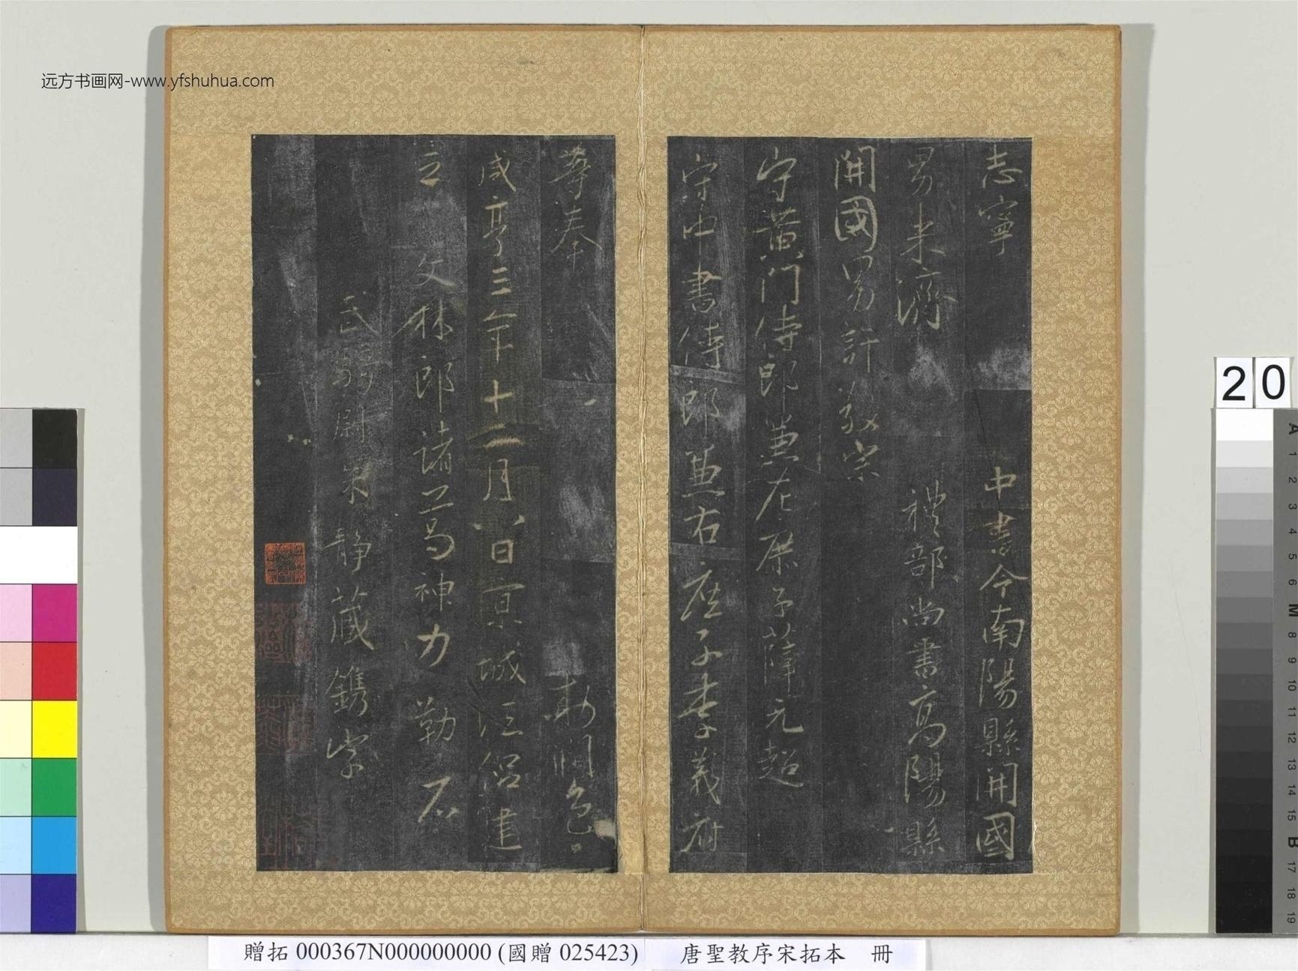 远方书画网-www.yfshuhua.com
志寧 中書令南陽縣開國
男来濟 禮部尚書高陽縣
開國男許敬宗
守黃门侍郎兼左庶子薛元超
守中書侍郎兼右庶子李義府
等奉 勑潤色
咸亨三年十二月八日京城法侶建
立 文林郎諸葛神力勒石
武騎尉朱静藏鐫字
20
A 1 2 3 4 5 6 M 8 9 10 11 12 13 14 15 B 17 18 19
贈拓 000367N000000000 (國贈 025423) 唐聖教序宋拓本 冊